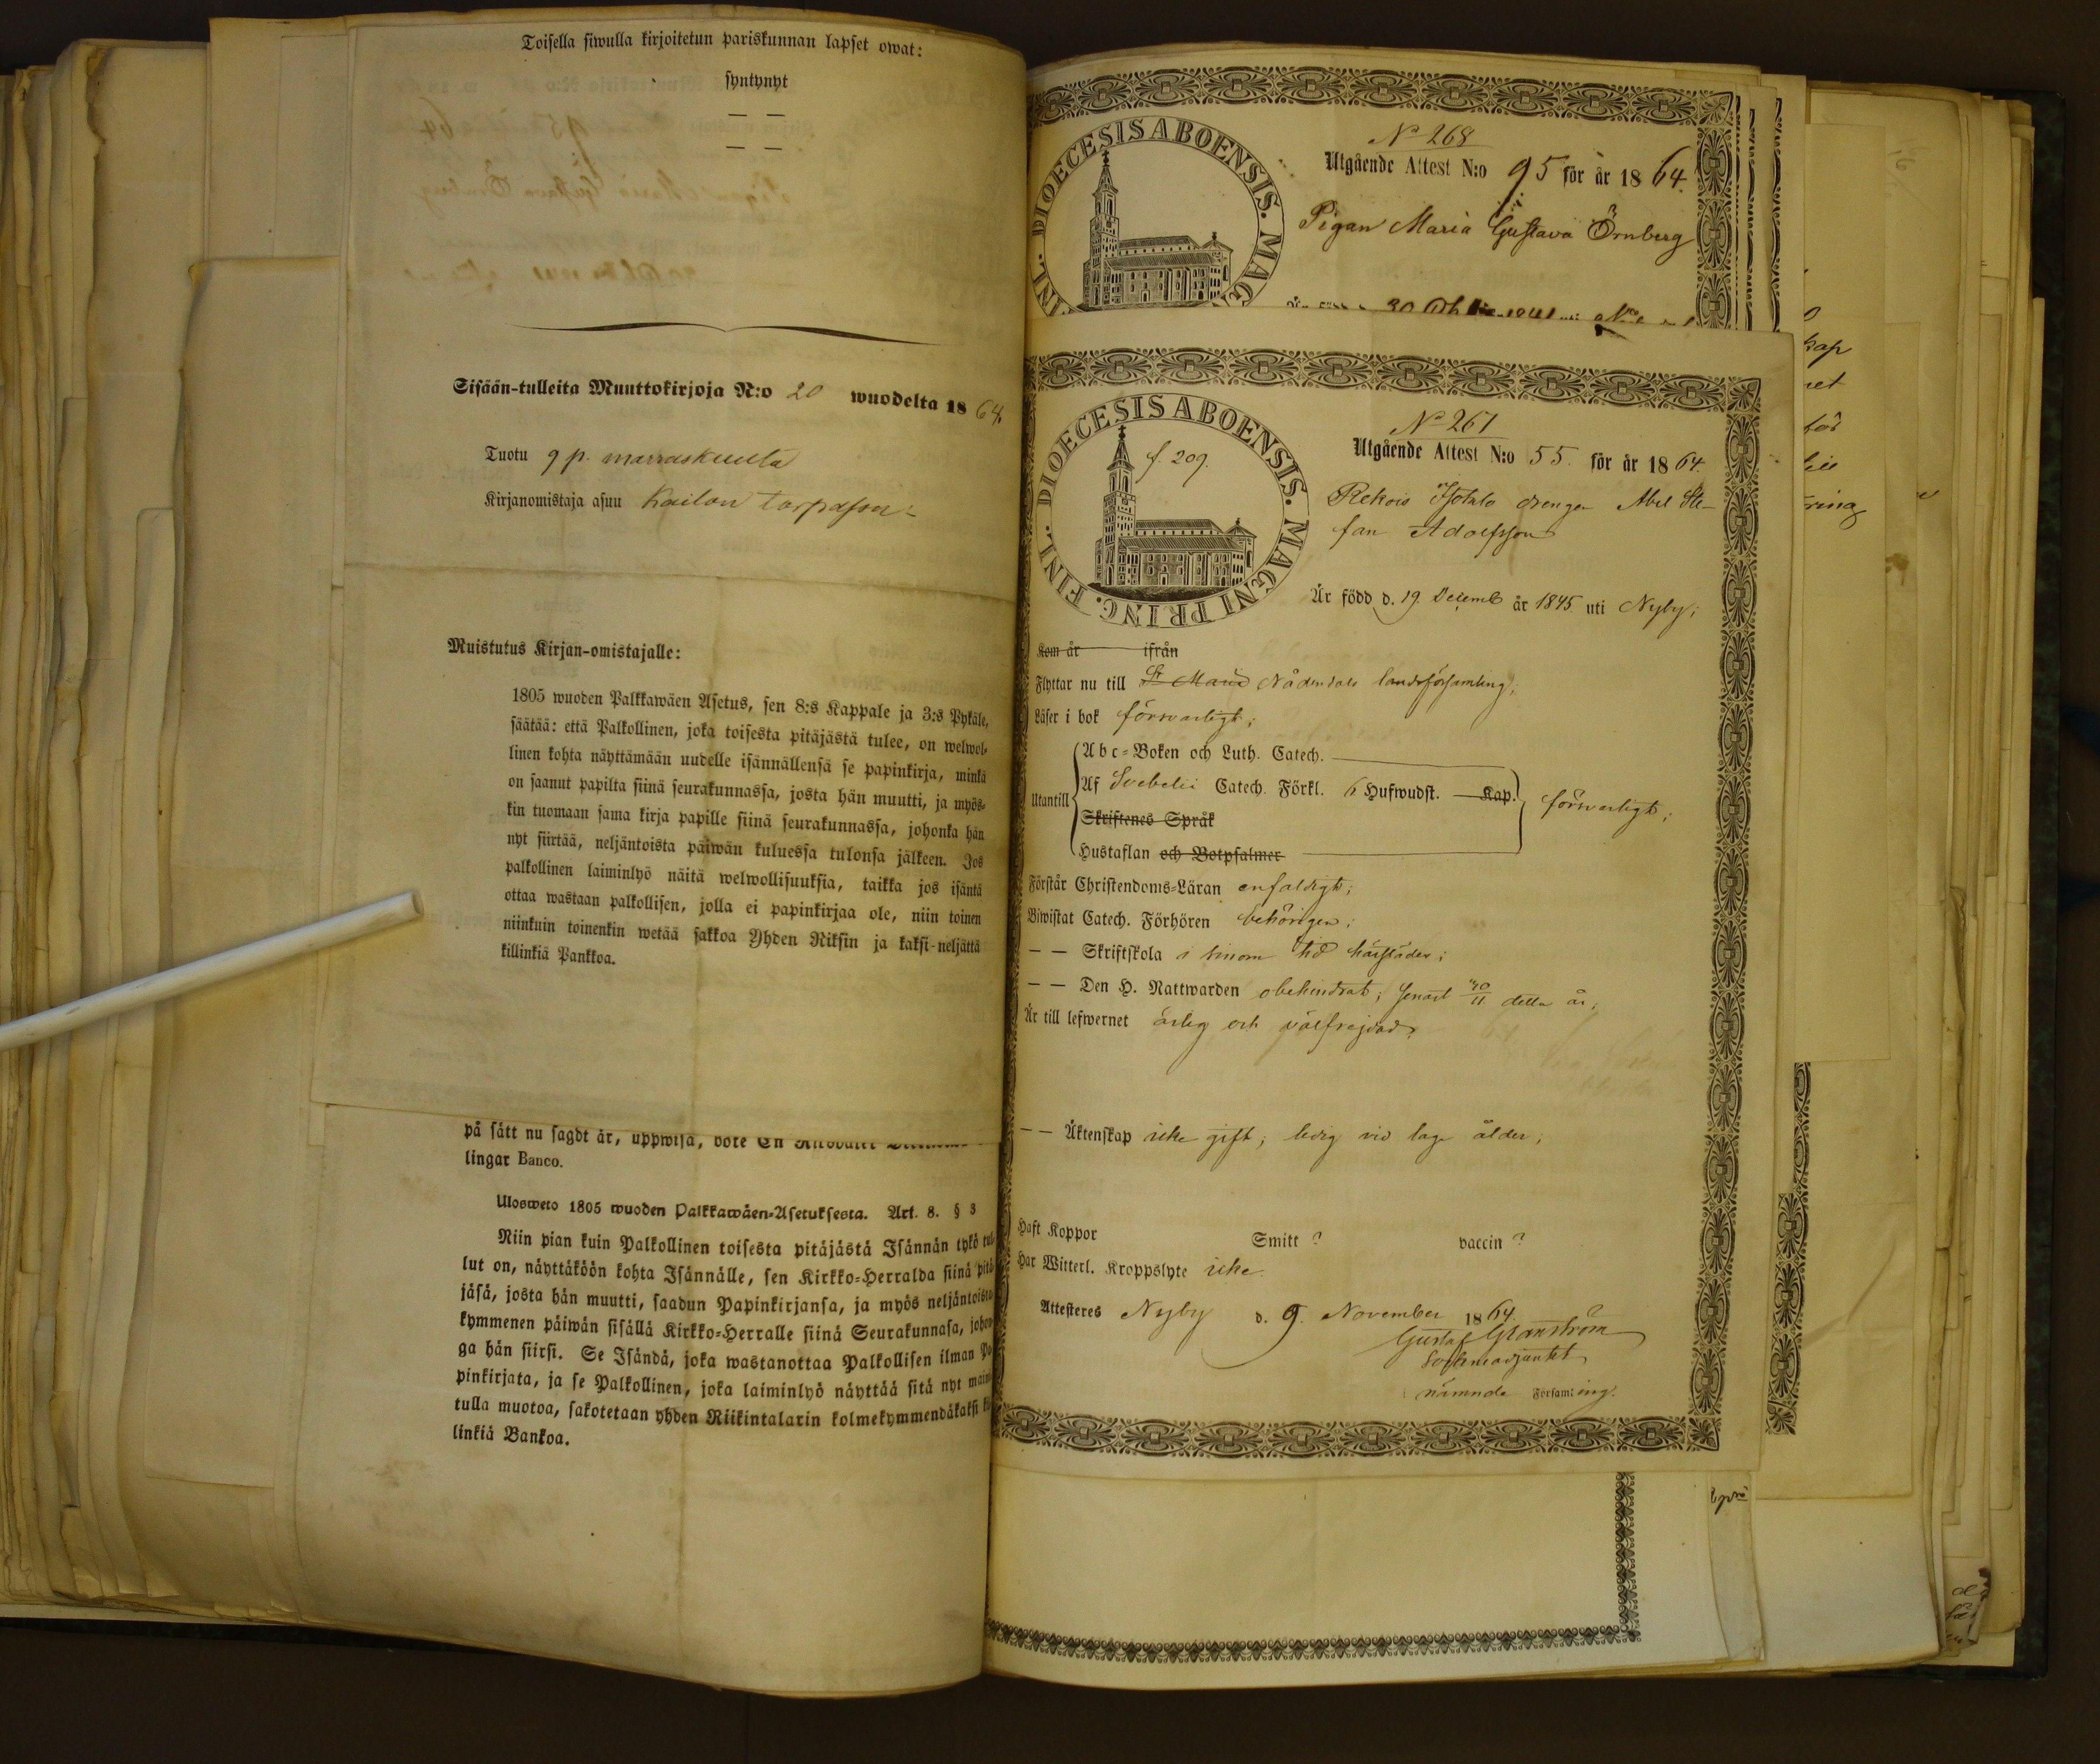 Toisella siwulla kirjoitetun pariskunnan lapset owat:
syntynyt
— —
— —
Sisään-tulleita Muuttokirjoja N:o 20 wuodelta 1864.
Tuotu 9 p. marraskuulta
Kirjanomistaja asuu Kailon torpassa
Muistutus Kirjan-omistajalle:
1805 wuoden Palkkawäen Asetus, sen 8:s Kappale ja 3:s Pykäle,
säätää: että Palkollinen, joka toisesta pitäjästä tulee, on welwol-
linen kohta näyttämään uudelle isännällensä se papinkirja, minkä
on saanut papilta siinä seurakunnassa, josta hän muutti, ja myös-
kin tuomaan sama kirja papille siinä seurakunnassa, johonka hän
nyt siirtää, neljäntoista päiwän kuluessa tulonsa jälkeen. Jos
palkollinen laiminlyö näitä welwollisuuksia, taikka jos isäntä
ottaa wastaan palkollisen, jolla ei papinkirjaa ole, niin toinen
niinkuin toinenkin wetää sakkoa Yhden Riksin ja kaksi-neljättä
killinkiä Pankkoa.
på sätt nu sagdt är, uppwisa, böte En
lingar Banco.
Ulosweto 1805 wuoden Palkkawäen-Asetuksesta. Art. 8. § 3
Niin pian kuin Palkollinen toisesta pitäjästä Isännän tykö tul-
lut on, näyttäköön kohta Isännälle, sen Kirkko-Herralda siinä pitä
jäsä, josta hän muutti, saadun Papinkirjansa, ja myös neljäntoista
kymmenen päiwän sisällä Kirkko-Herralle siinä Seurakunnasa, johon
ga hän siirsi. Se Isändä, joka wastanottaa Palkollisen ilman Pa
pinkirjata, ja se Palkollinen, joka laiminlyö näyttää sitä nyt maini
tulla muotoa, sakotetaan yhden Riikintalarin kolmekymmendäkaksi kil
linkiä Bankoa.
DIOECESIS ABOENSIS. MAG
FINL.
No 268
Utgående Attest N:o 95 för år 1864.
Pigan Maria Gustava Örnberg
DIOECESIS ABOENSIS. MAGNI PRINC. FINL.
f. 209.
No 261
Utgående Attest N:o 55. för år 1864.
Rekois Isotalo drengen Abel Ste-
fan Adolfsson
Är född d. 19 Decemb år 1845 uti Nyby;
Kom år ifrån
Flyttar nu till St Marie Nådendals landsförsamling;
Läser i bok försvarligt;
Utantill
Abc-Boken och Luth. Catech.
Af Svebelii Catech. Förkl. 6 Hufwudst. Kap.
Skriftenes Språk
Hustaflan och Botpsalmer
försvarligt;
Förstår Christendoms-Läran enfaldigt;
Biwistat Catech. Förhören behörigen;
— — Skriftskola i sinom tid härstädes;
— — Den H. Nattwarden obehindrat; senast detta år;
Är till lefwernet ärlig och välfrejdad.
— — Äktenskap icke gift; ledig vid laga ålder;
Haft Koppor Smitt ? vaccin ?
Har Witterl. Kroppslyte icke.
Attesteres Nyby d. 9. November 1864.
Gustaf Granström
Sockneadjunkt
nämnde Församling.